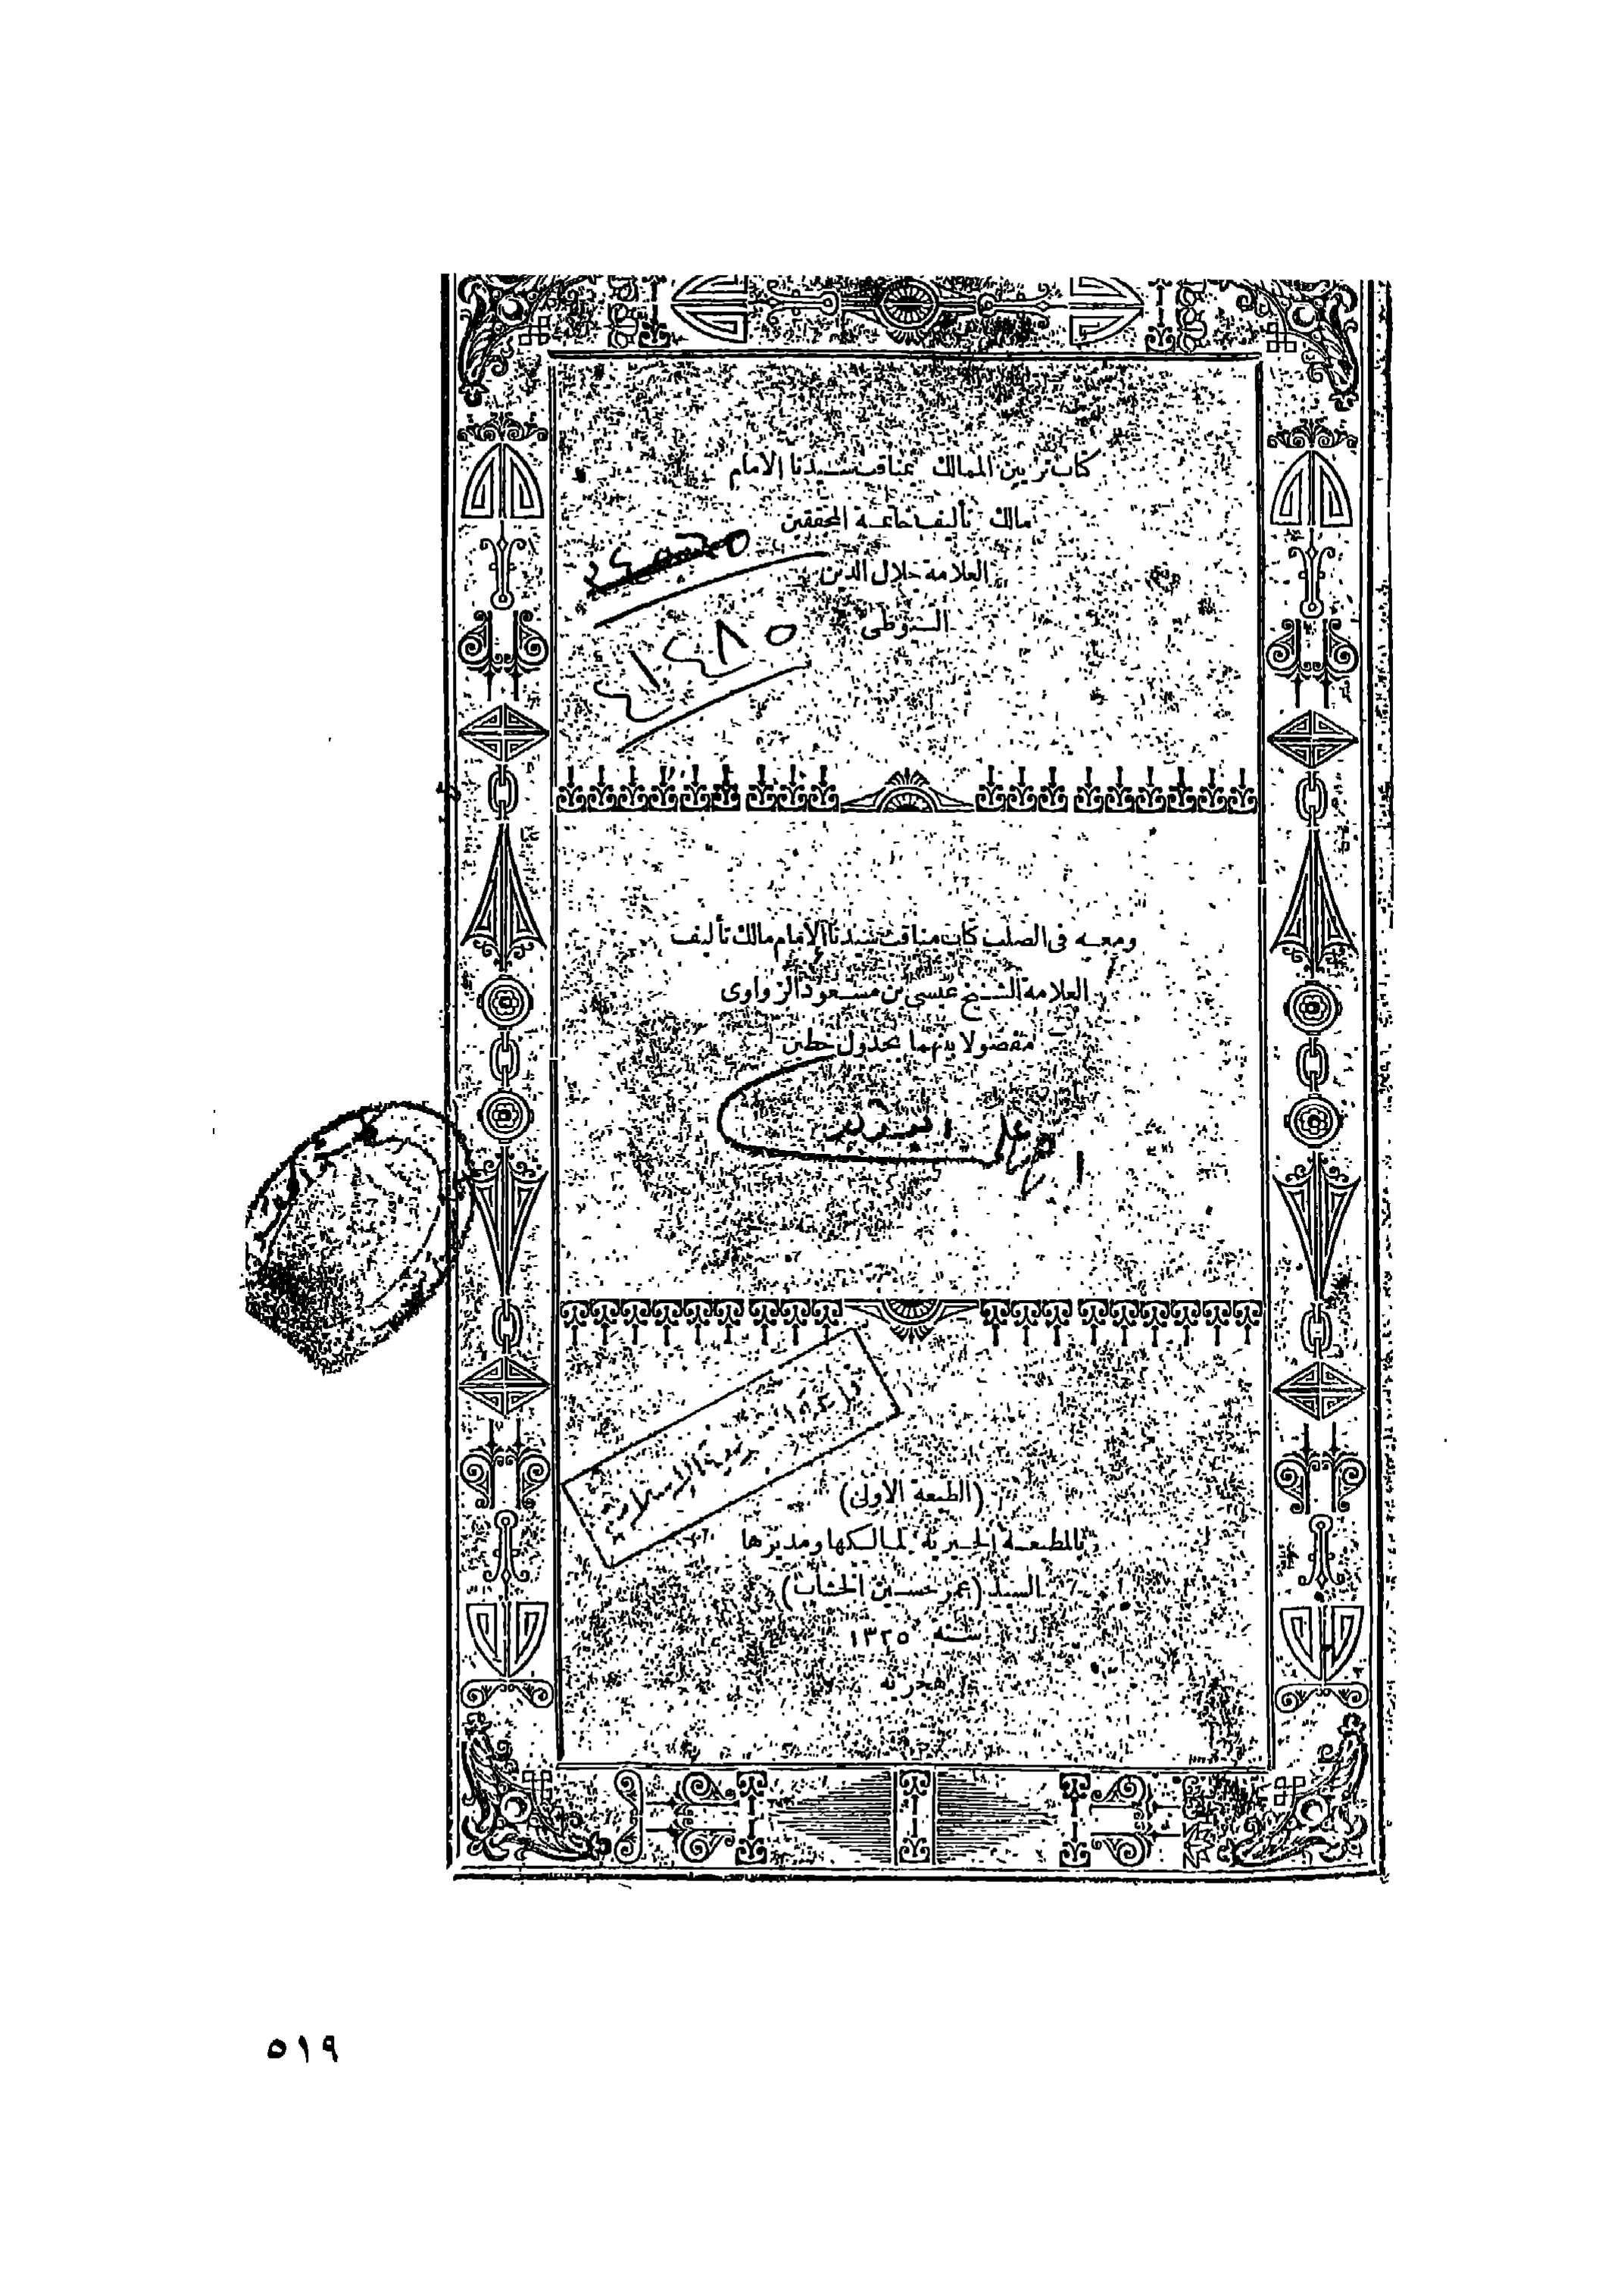 كتاب تزيين الممالك بمناقب سيدنا الامام
مالك تأليف خاتمة المحققين
العلامة جلال الدين
السيوطى
٤١٤٨٥
ومعه فى الصلب كتاب مناقب سيدنا الامام مالك تأليف
العلامة الشيخ عيسى بن مسعود الزواوى
مفصولا بينهما بجدول
(الطبعة الاولى)
بالمطبعة الخيرية لمالكها ومديرها
السيد (عمر حسين الخشاب)
سنة ١٣٢٥
هجرية
٥١٩